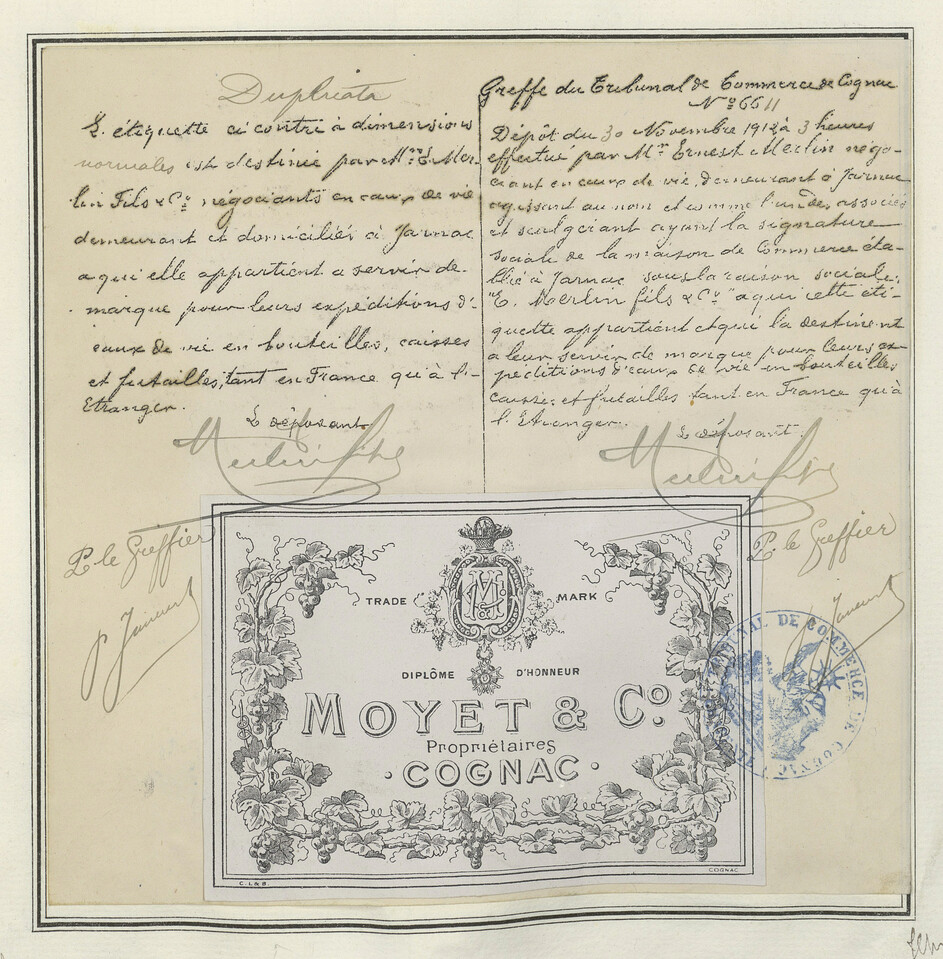 Duplicata
L'étiquette ci contre à dimensions
normales est destinée par Mrs E. Mer-
lin Fils & Co négociants en eaux de vie
demeurant et domiciliés à Jarnac
a qui elle appartient a servir de
marque pour leurs expéditions d'
eaux de vie en bouteilles, caisses
et futailles, tant en France qu'à l'
Etranger.
Le déposant
Merlin fils
P. le Greffier
Greffe du Tribunal de Commerce de Cognac
No 6511
Dépôt du 30 Novembre 1912 à 3 heures
effectué par Mr Ernest Merlin négo-
ciant en eaux de vie, demeurant à Jarnac
agissant au nom et comme l'un des associés
et seul gérant ayant la signature
sociale de la maison de Commerce éta-
blie à Jarnac sous la raison sociale:
"E. Merlin fils & Co" a qui cette éti-
quette appartient et qui la destinent
a leur servir de marque pour leurs ex-
péditions d'eaux de vie en bouteilles
caisses et futailles tant en France qu'à
l'Etranger.
Le déposant.
Merlin fils
P. le Greffier
TRADE MARK
DIPLÔME D'HONNEUR
MOYET & Co.
Propriétaires
COGNAC
C. L & B.
COGNAC
TRIBUNAL DE COMMERCE DE COGNAC